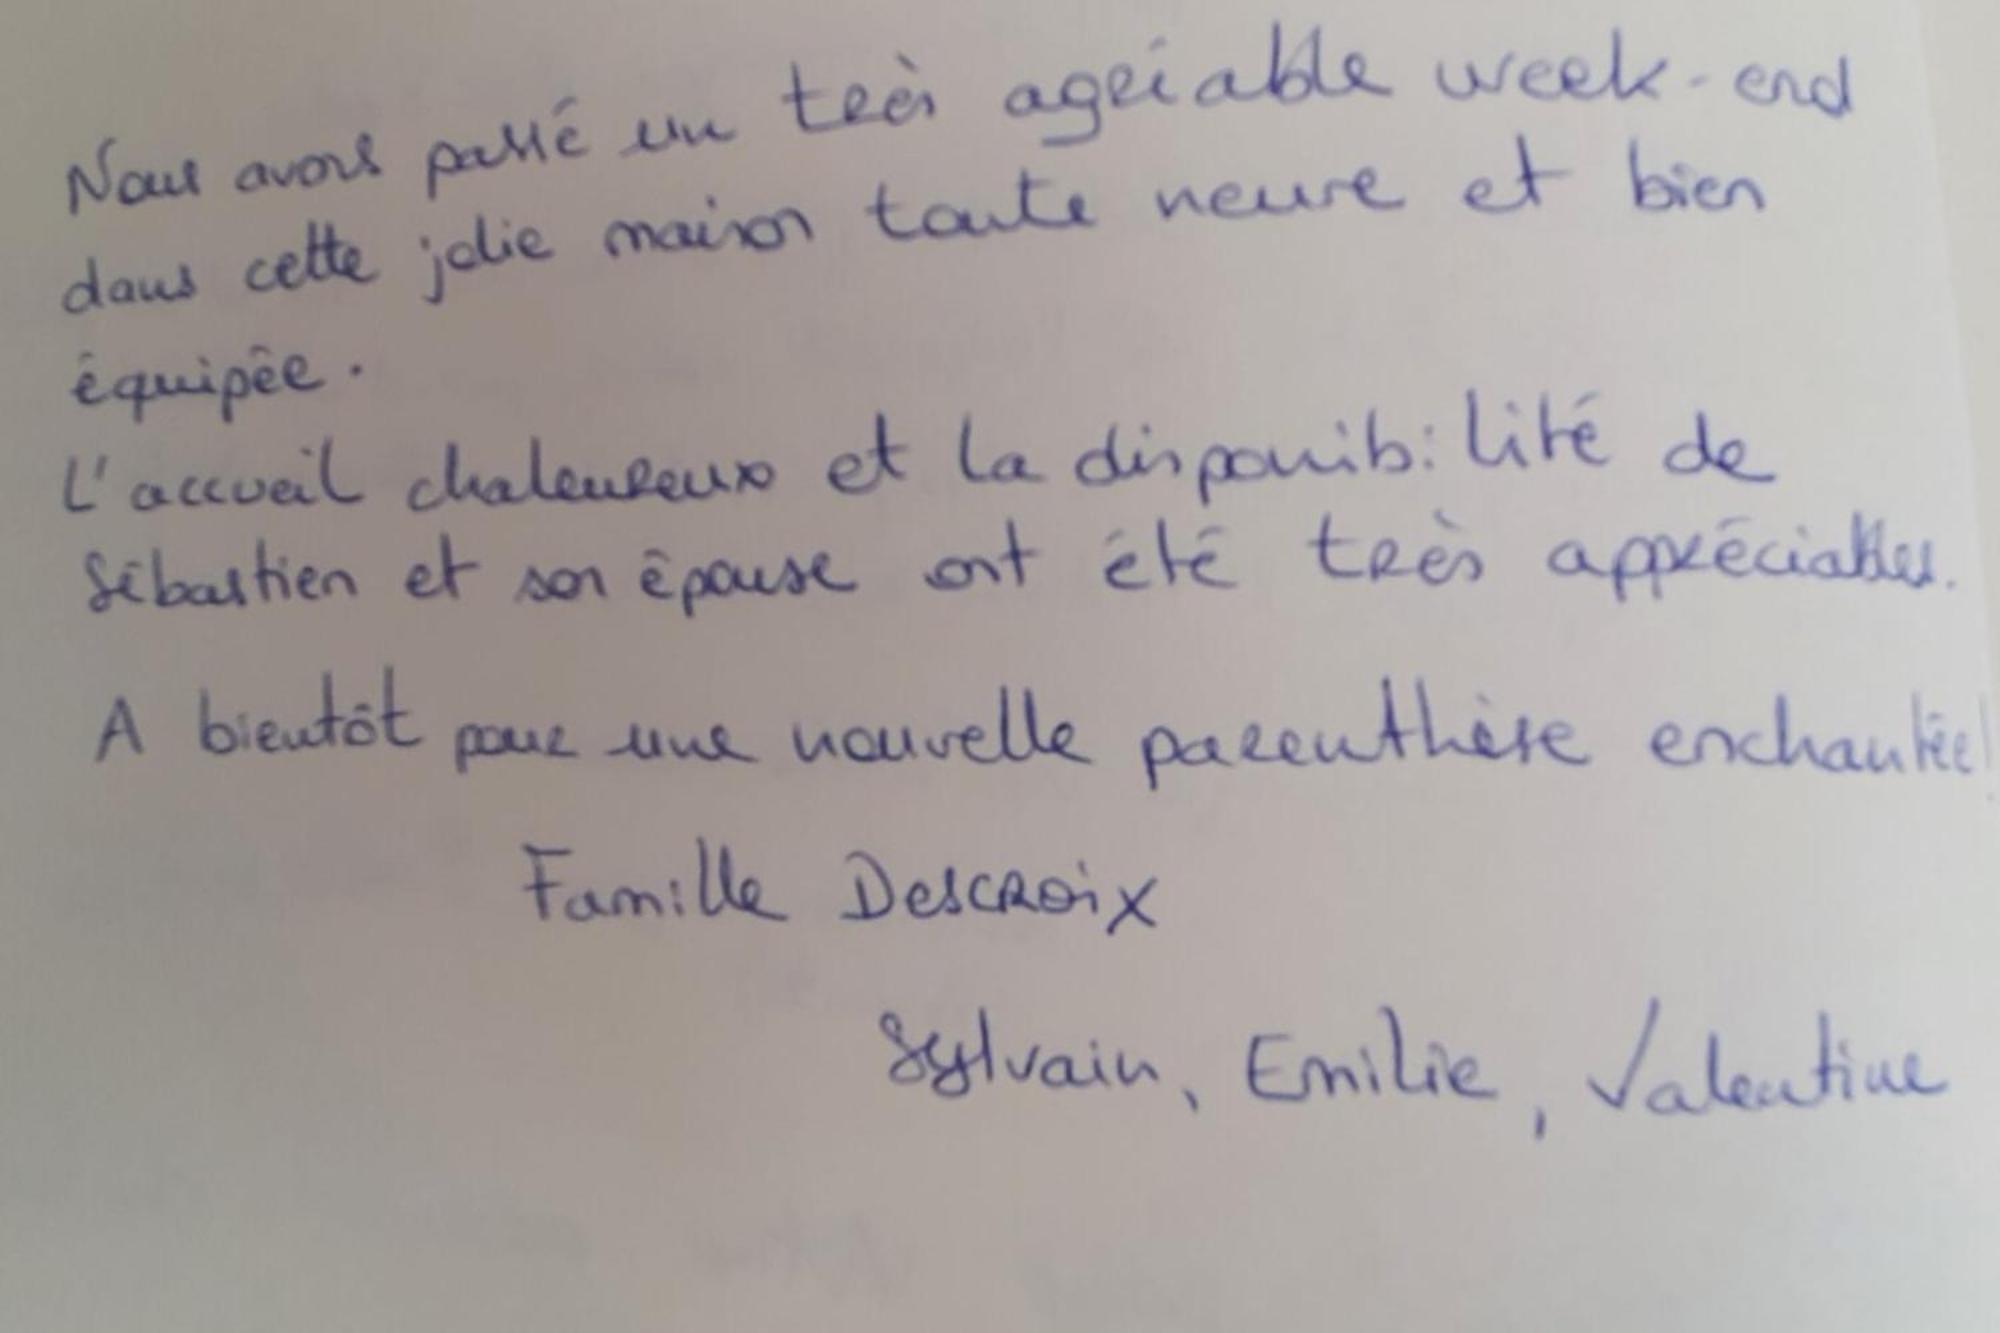 Nous avons passé un très agréable week-end
dans cette jolie maison toute neuve et bien
équipée.
L'accueil chaleureux et la disponibilité de
Sébastien et son épouse ont été très appréciables.
A bientôt pour une nouvelle parenthèse enchantée!
Famille Descroix
Sylvain, Emilie, Valentine